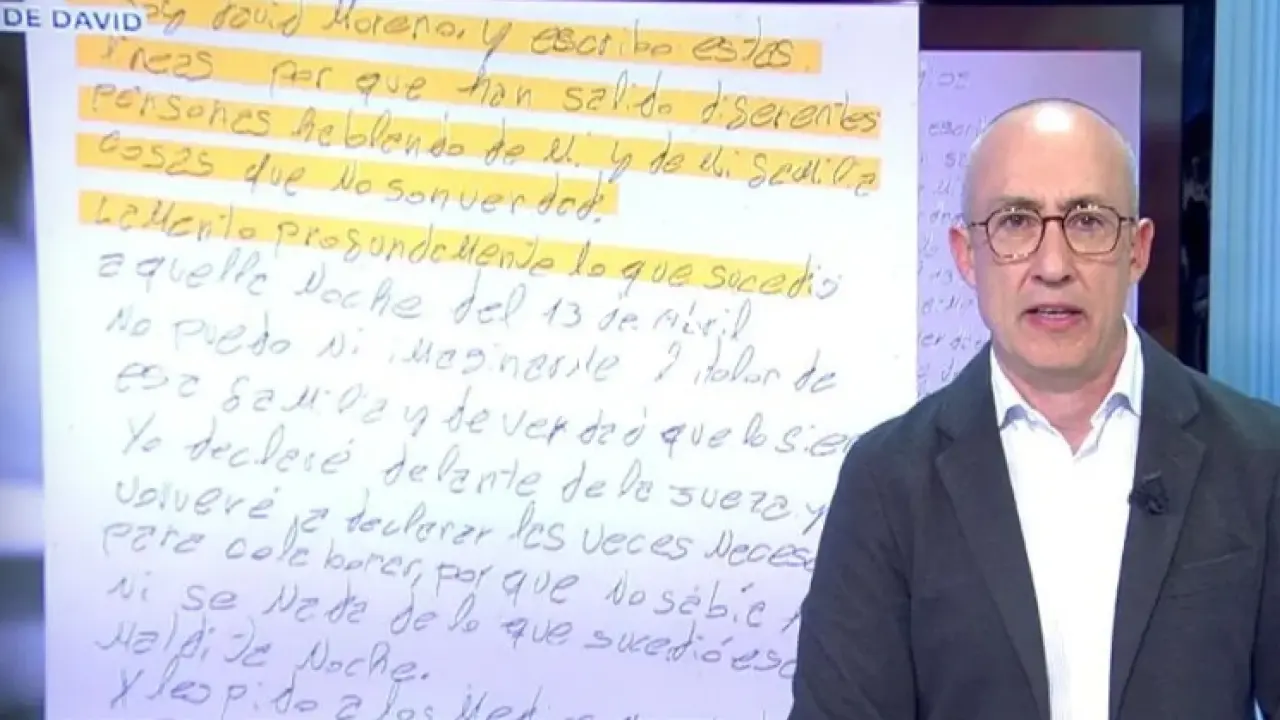 DE DAVID
soy david Moreno, y escribo estas
lineas por que han salido diferentes
personas hablando de Mi y de Mi familia
cosas que No son verdad.
Lamento profundamente lo que sucedió
aquella Noche del 13 de Abril
No puedo Ni imaginarme l dolor de
esa familia y de verdad que lo sien
Yo declaré delante de la Jueza y
volveré a declarar las veces Neces
para colaborar, por que No sabía
Ni se Nada de lo que sucedió esa
Maldita Noche.
Y les pido a los Med